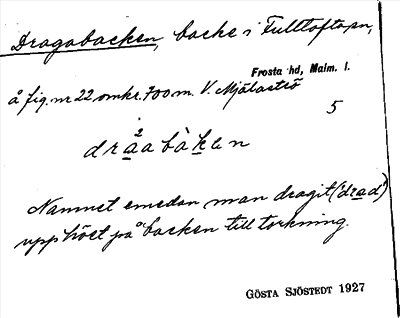 Dragabacken, backe i Fulltofta sn,
Frosta hd, Malm. l.
å fig. nr 22 omkr. 700 m. V. Mjälaströ
5
2
draabàken
Namnet emedan man dragit ("drad")
upp höet på backen till torkning.
GÖSTA SJÖSTEDT 1927